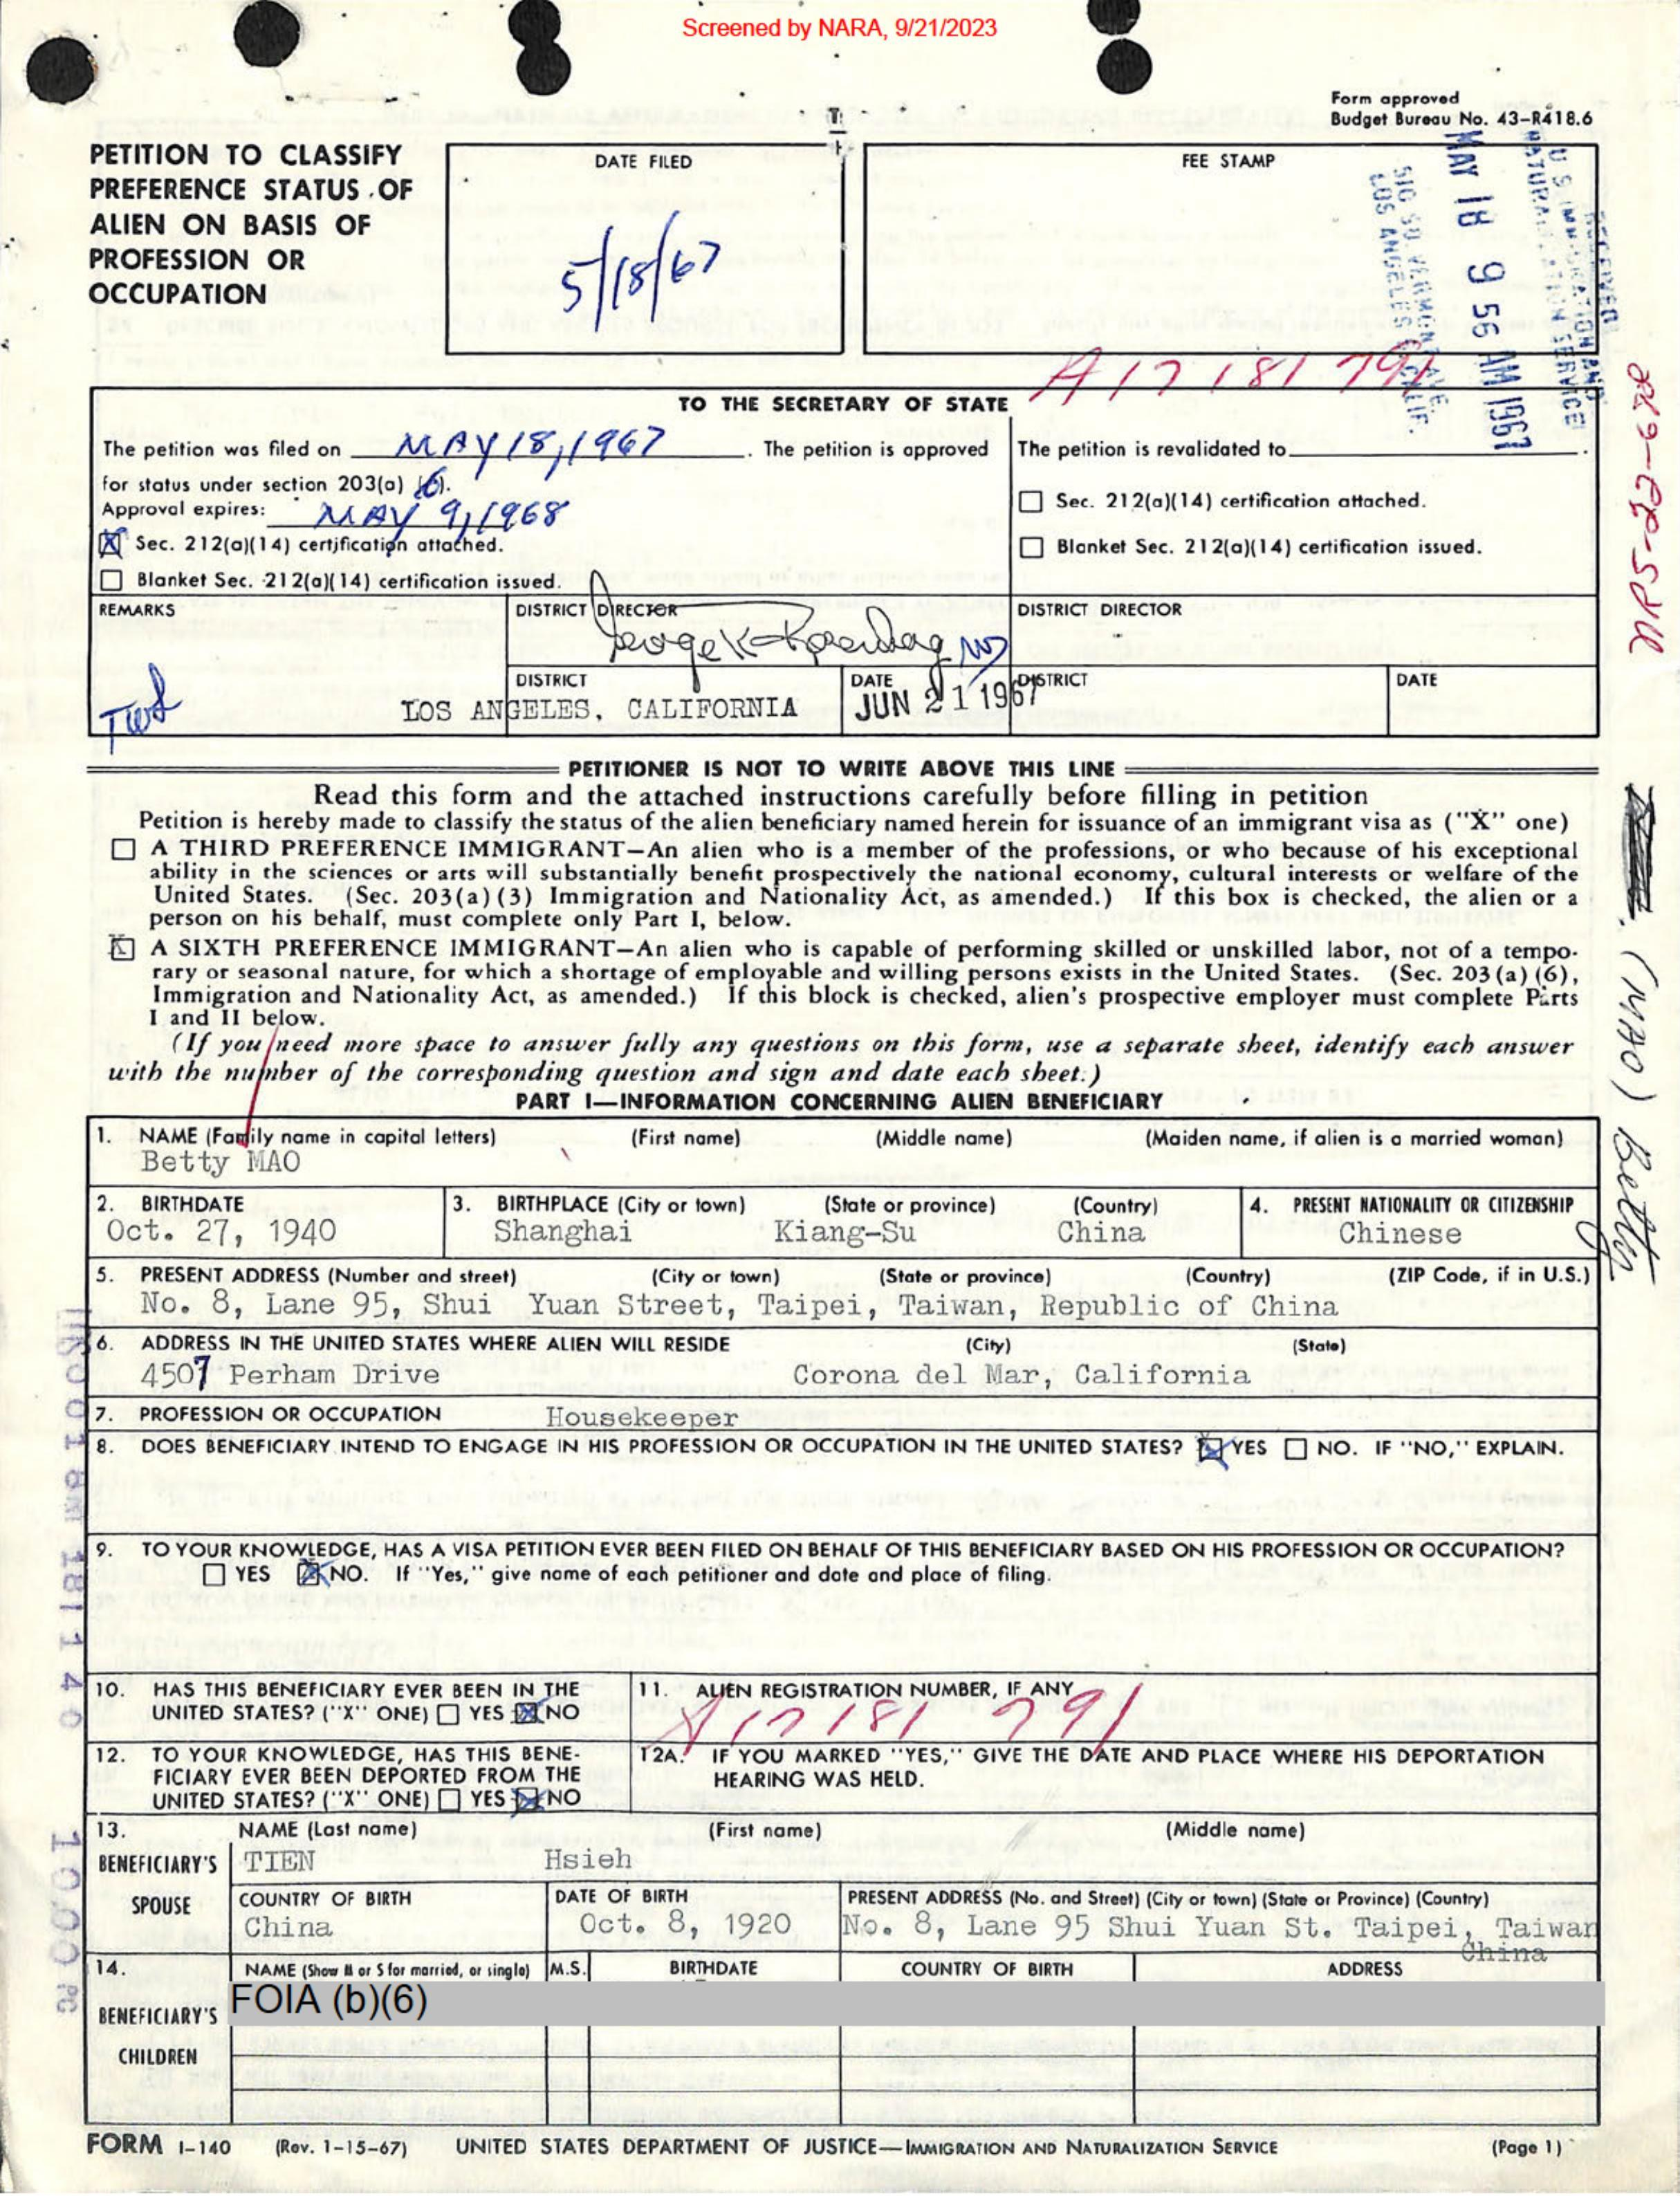 Screened by NARA, 9/21/2023
Form approved
Budget Bureau No. 43-R418.6
PETITION TO CLASSIFY
PREFERENCE STATUS OF
ALIEN ON BASIS OF
PROFESSION OR
OCCUPATION
DATE FILED
5/18/67
FEE STAMP
RECEIVED
U S IMMIGRATION AND
NATURALIZATION SERVICE
MAY 18 9 56 AM 1967
LOS ANGELES CALIF.
A17 181 791
MPS-22-628
TO THE SECRETARY OF STATE
The petition was filed on MAY 18, 1967. The petition is approved
for status under section 203(a) (6).
Approval expires: MAY 9, 1968
X Sec. 212(a)(14) certification attached.
Blanket Sec. 212(a)(14) certification issued.
The petition is revalidated to
Sec. 212(a)(14) certification attached.
Blanket Sec. 212(a)(14) certification issued.
REMARKS
DISTRICT DIRECTOR
DISTRICT DIRECTOR
DISTRICT
LOS ANGELES, CALIFORNIA
DATE
JUN 21 1967
DISTRICT
DATE
PETITIONER IS NOT TO WRITE ABOVE THIS LINE
Read this form and the attached instructions carefully before filling in petition
Petition is hereby made to classify the status of the alien beneficiary named herein for issuance of an immigrant visa as ("X" one)
A THIRD PREFERENCE IMMIGRANT—An alien who is a member of the professions, or who because of his exceptional
ability in the sciences or arts will substantially benefit prospectively the national economy, cultural interests or welfare of the
United States. (Sec. 203(a)(3) Immigration and Nationality Act, as amended.) If this box is checked, the alien or a
person on his behalf, must complete only Part I, below.
X A SIXTH PREFERENCE IMMIGRANT—An alien who is capable of performing skilled or unskilled labor, not of a tempo-
rary or seasonal nature, for which a shortage of employable and willing persons exists in the United States. (Sec. 203(a)(6),
Immigration and Nationality Act, as amended.) If this block is checked, alien's prospective employer must complete Parts
I and II below.
(If you need more space to answer fully any questions on this form, use a separate sheet, identify each answer
with the number of the corresponding question and sign and date each sheet.)
(MAO) Betty
PART I—INFORMATION CONCERNING ALIEN BENEFICIARY
1. NAME (Family name in capital letters) (First name) (Middle name) (Maiden name, if alien is a married woman)
Betty MAO
2. BIRTHDATE
Oct. 27, 1940
3. BIRTHPLACE (City or town) (State or province) (Country)
Shanghai Kiang-Su China
4. PRESENT NATIONALITY OR CITIZENSHIP
Chinese
5. PRESENT ADDRESS (Number and street) (City or town) (State or province) (Country) (ZIP Code, if in U.S.)
No. 8, Lane 95, Shui Yuan Street, Taipei, Taiwan, Republic of China
6. ADDRESS IN THE UNITED STATES WHERE ALIEN WILL RESIDE (City) (State)
4507 Perham Drive Corona del Mar, California
7. PROFESSION OR OCCUPATION Housekeeper
8. DOES BENEFICIARY INTEND TO ENGAGE IN HIS PROFESSION OR OCCUPATION IN THE UNITED STATES? X YES NO. IF "NO," EXPLAIN.
9. TO YOUR KNOWLEDGE, HAS A VISA PETITION EVER BEEN FILED ON BEHALF OF THIS BENEFICIARY BASED ON HIS PROFESSION OR OCCUPATION?
YES X NO. If "Yes," give name of each petitioner and date and place of filing.
10. HAS THIS BENEFICIARY EVER BEEN IN THE
UNITED STATES? ("X" ONE) YES X NO
11. ALIEN REGISTRATION NUMBER, IF ANY
A17 181 791
12. TO YOUR KNOWLEDGE, HAS THIS BENE-
FICIARY EVER BEEN DEPORTED FROM THE
UNITED STATES? ("X" ONE) YES X NO
12A. IF YOU MARKED "YES," GIVE THE DATE AND PLACE WHERE HIS DEPORTATION
HEARING WAS HELD.
13. BENEFICIARY'S SPOUSE
NAME (Last name) (First name) (Middle name)
TIEN Hsieh
COUNTRY OF BIRTH
China
DATE OF BIRTH
Oct. 8, 1920
PRESENT ADDRESS (No. and Street) (City or town) (State or Province) (Country)
No. 8, Lane 95 Shui Yuan St. Taipei, Taiwan
China
14. BENEFICIARY'S CHILDREN
NAME (Show M or S for married, or single) M.S. BIRTHDATE COUNTRY OF BIRTH ADDRESS
FOIA (b)(6)
FORM I-140 (Rev. 1-15-67) UNITED STATES DEPARTMENT OF JUSTICE—IMMIGRATION AND NATURALIZATION SERVICE (Page 1)